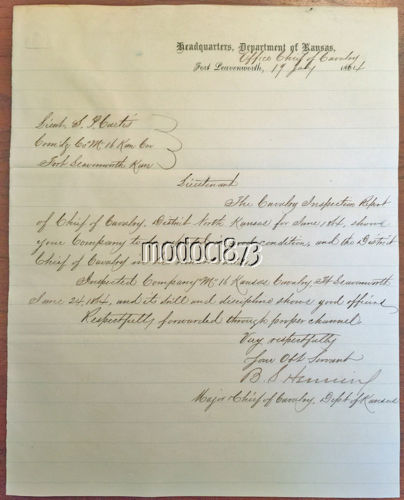 Headquarters, Department of Kansas,
Office Chief of Cavalry
Fort Leavenworth, 19 July 1864
Lieut S. P. Curtis
Comdg Co "M" 16 Kan Cav
Fort Leavenworth Kan
Lieutenant
The Cavalry Inspection Report
of Chief of Cavalry, District North Kansas for June 1864, shows
your Company to condition, and the District
Chief of Cavalry
modoc873
Inspected Company "M" 16 Kansas Cavalry, Ft Leavenworth
June 24, 1864, and its drill and discipline shows good officers
Respectfully forwarded through proper channel
Very respectfully
Your Obt Servant
B. S. Henning
Major Chief of Cavalry, Dept of Kansas